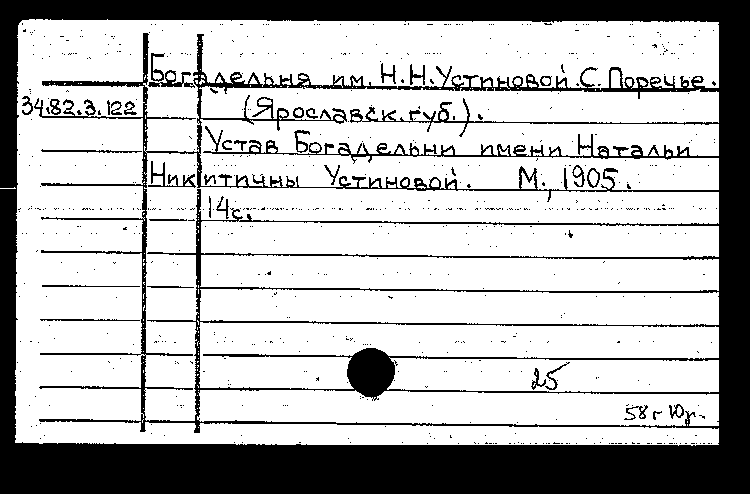 Богадельня им. Н.Н.Устиновой.С.Поречье.
34.82.3.122 (Ярославск.губ.).
Устав Богадельни имени Натальи
Никитичны Устиновой. М., 1905.
14с.
25
58г